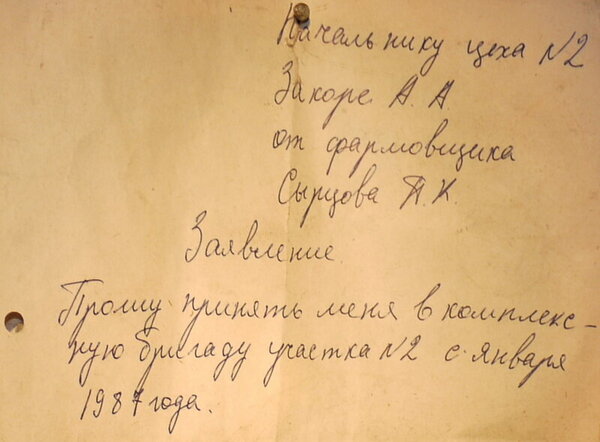 Начальнику цеха №2
Закоре А. А.
от фармовщика
Сырцова П. К.
Заявление
Прошу принять меня в комплекс-
ную бригаду участка №2 с января
1987 года.